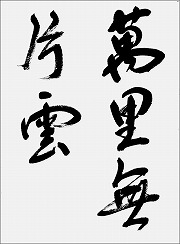 萬里無
片雲